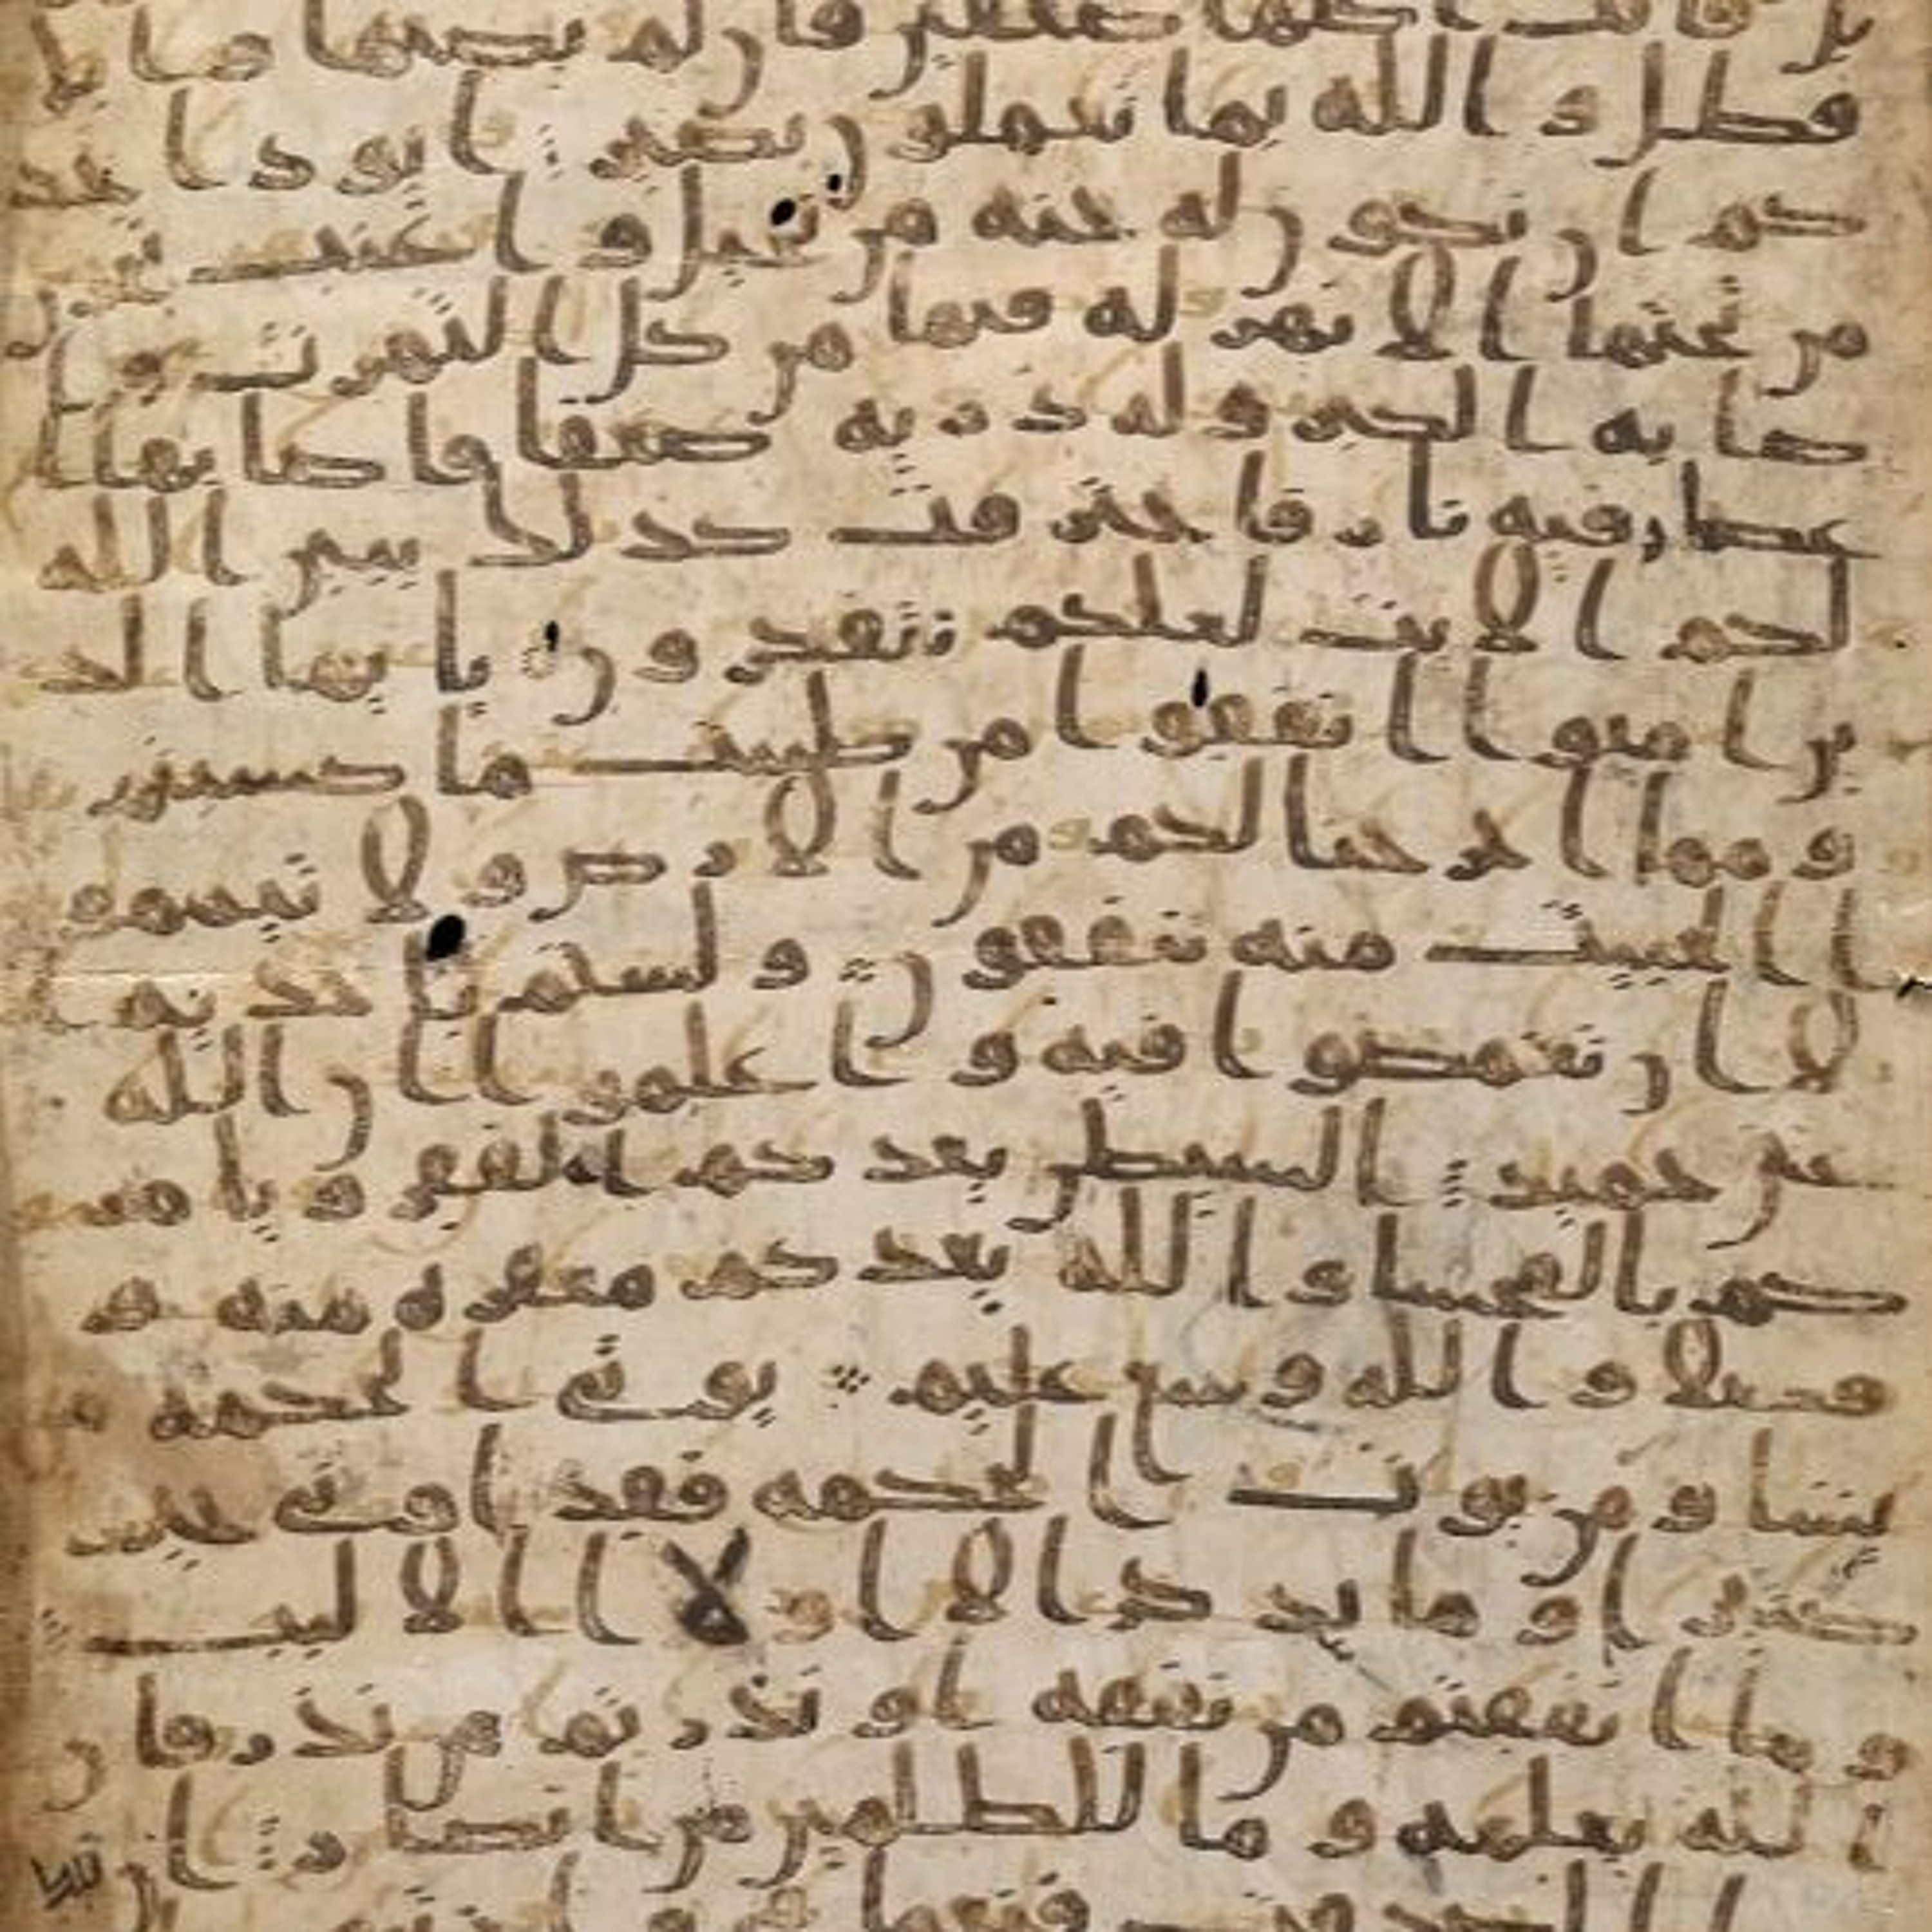 بل فاتت اكلها ضعفين فان لم يصبها وابل
فطل و الله بما تعملون بصير ايود احد
كم ان تكون له جنه من نخيل و اعنب تجري
من تحتها الانهر له فيها من كل الثمرت وا
صابه الكبر وله ذريه ضعفا فاصابها ا
عصار فيه نار فاحترقت كذلك يبين الله
لكم الايت لعلكم تتفكرون يايها الذ
ين امنوا انفقوا من طيبت ما كسبتم
و مما اخرجنا لكم من الارض ولا تيممو
ا الخبيث منه تنفقون و لستم باخذيه ا
لا ان تغمضوا فيه و اعلموا ان الله
غني حميد الشيطن يعدكم الفقر و يامر
كم بالفحشا و الله يعدكم مغفره منه و
فضلا و الله وسع عليم يوتي الحكمه من
يشا و من يوت الحكمه فقد اوتي خير
كثيرا و ما يذكر الا اولا الالبب
و ما انفقتم من نفقه او نذرتم من نذر فان
الله يعلمه و ما للظلمين من انصار ان تبد
ا الصدقت فنعما